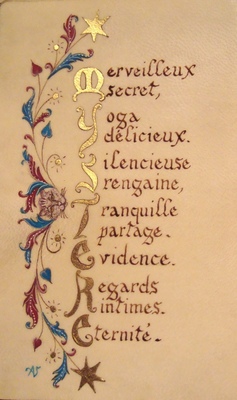 Merveilleux
secret,
Yoga
délicieux.
Silencieuse
rengaine,
Tranquille
partage.
Evidence.
Regards
intimes.
Eternité.